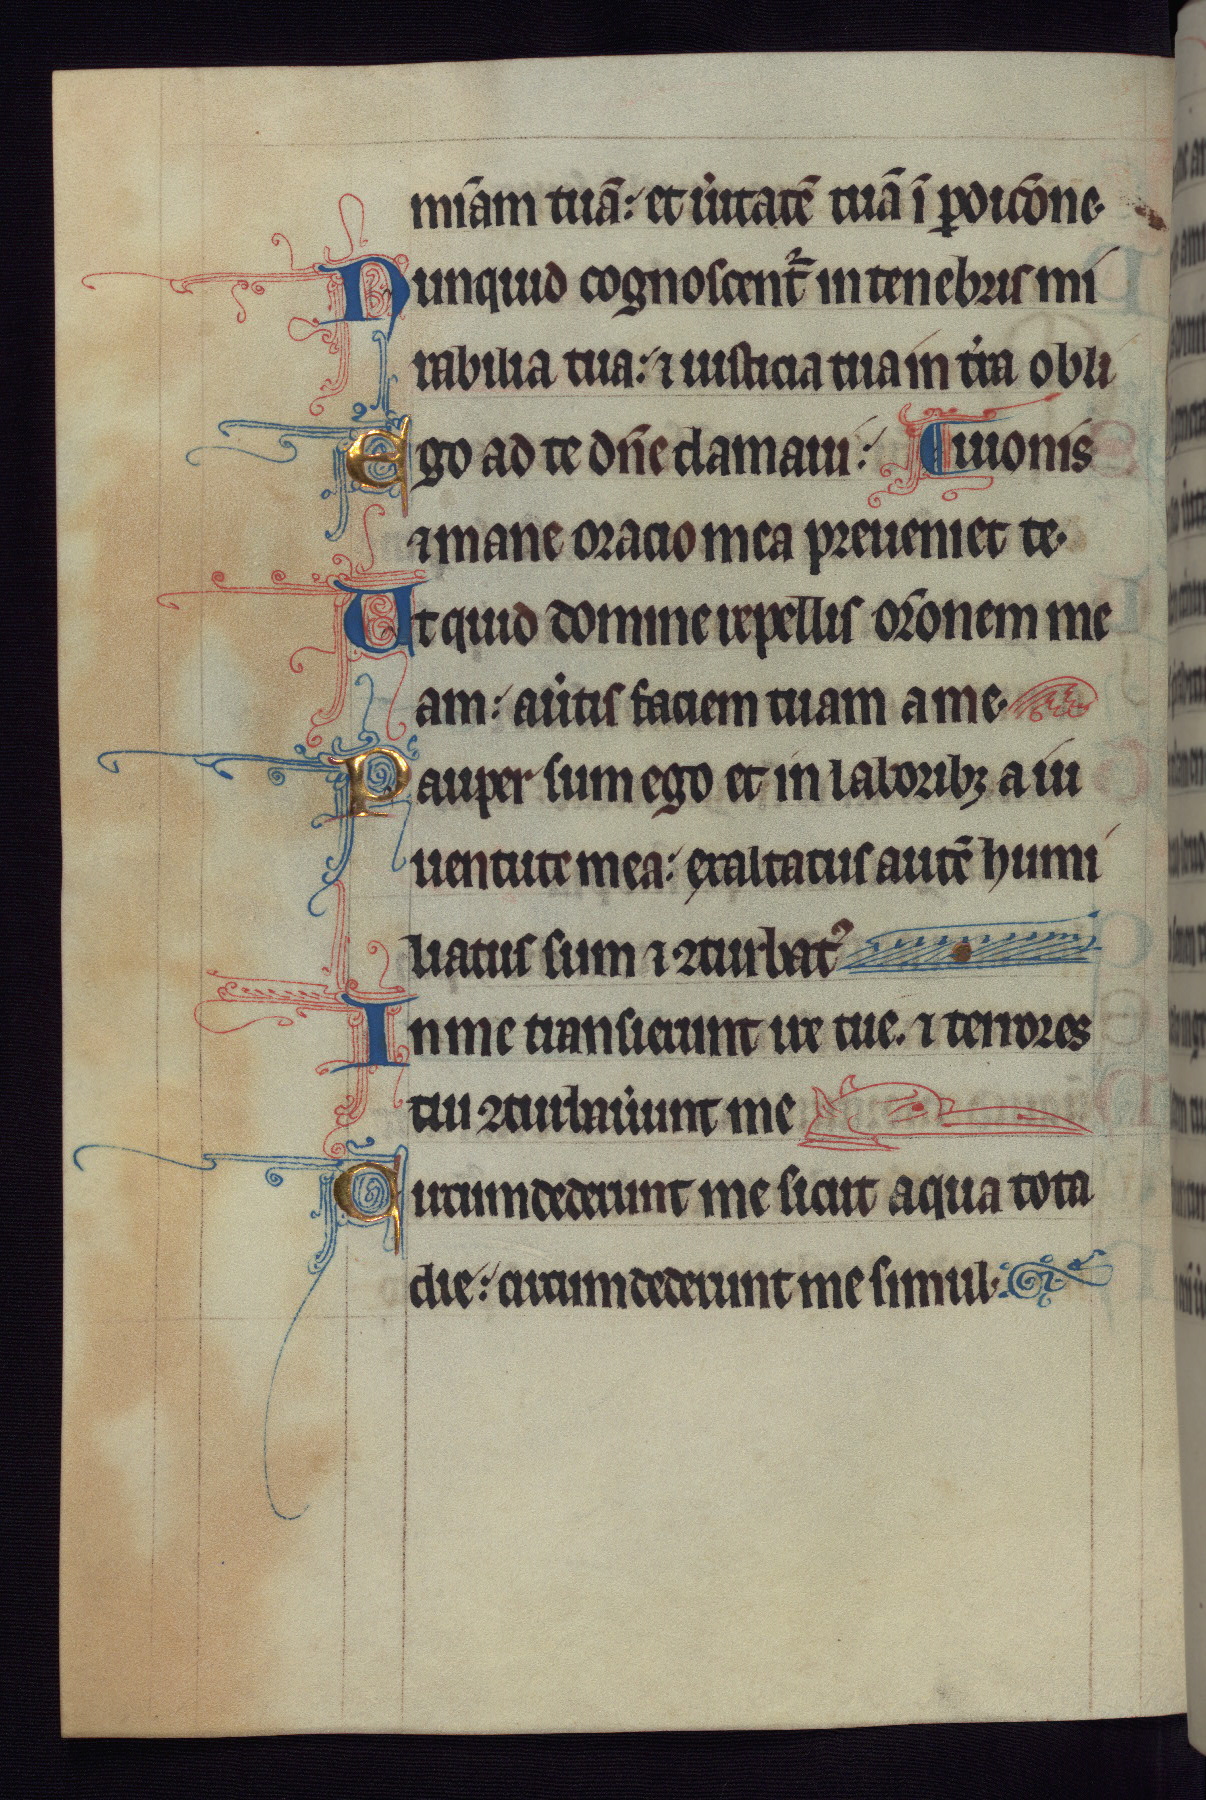 mīam tuā: et ùitatē tuā ī ꝑdic̄one.
Nunquid cognoscent᷑ in tenebris mi
rabilia tua: ⁊ iusticia tua in t̉ra obli
Ego ad te dn̄e clamaui: Cuionis
⁊ mane oracio mea preueniet te.
Ut quid domine repellis or̄onem me
am: au̾tis faciem tuam a me.
Pauper sum ego et in laboribꝫ a iu
uentute mea: exaltatus autē humi
liatus sum ⁊ ꝯturbatꝰ
In me transierunt ire tue. ⁊ terrores
tui ꝯturbau̾unt me
Circumdederunt me sicut aqua tota
die: circumdederunt me simul.